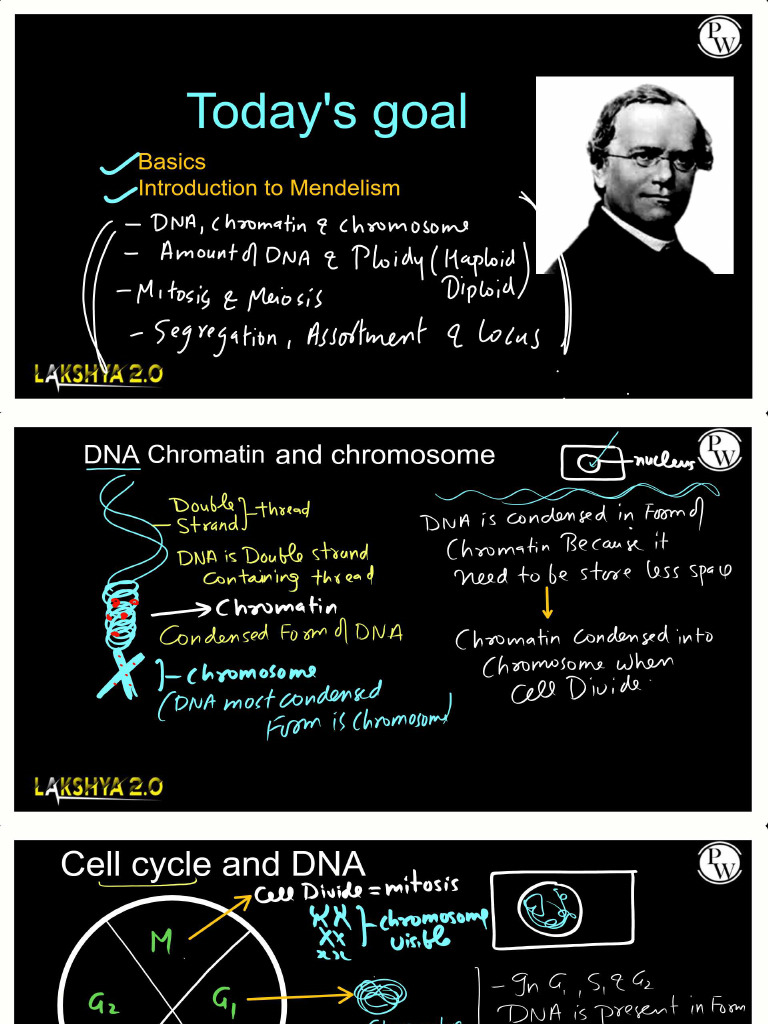 PW
Today's goal
Basics
Introduction to Mendelism
- DNA, Chromatin & chromosome
- Amount of DNA & Ploidy (Haploid
Diploid)
- Mitosis & Meiosis
- Segregation, Assortment & locus
LAKSHYA 2.0
DNA Chromatin and chromosome
PW
nucleus
Double
Strand
thread
DNA is Double strand
containing thread
Chromatin
Condensed Form of DNA
chromosome
(DNA most condensed
Form is chromosome)
DNA is condensed in Form of
Chromatin Because it
need to be store less space
Chromatin condensed into
Chromosome when
Cell Divide.
LAKSHYA 2.0
Cell cycle and DNA
PW
Cell Divide = mitosis
chromosome
visible
M
G2
G1
- In G1, S, & G2
DNA is present in Form